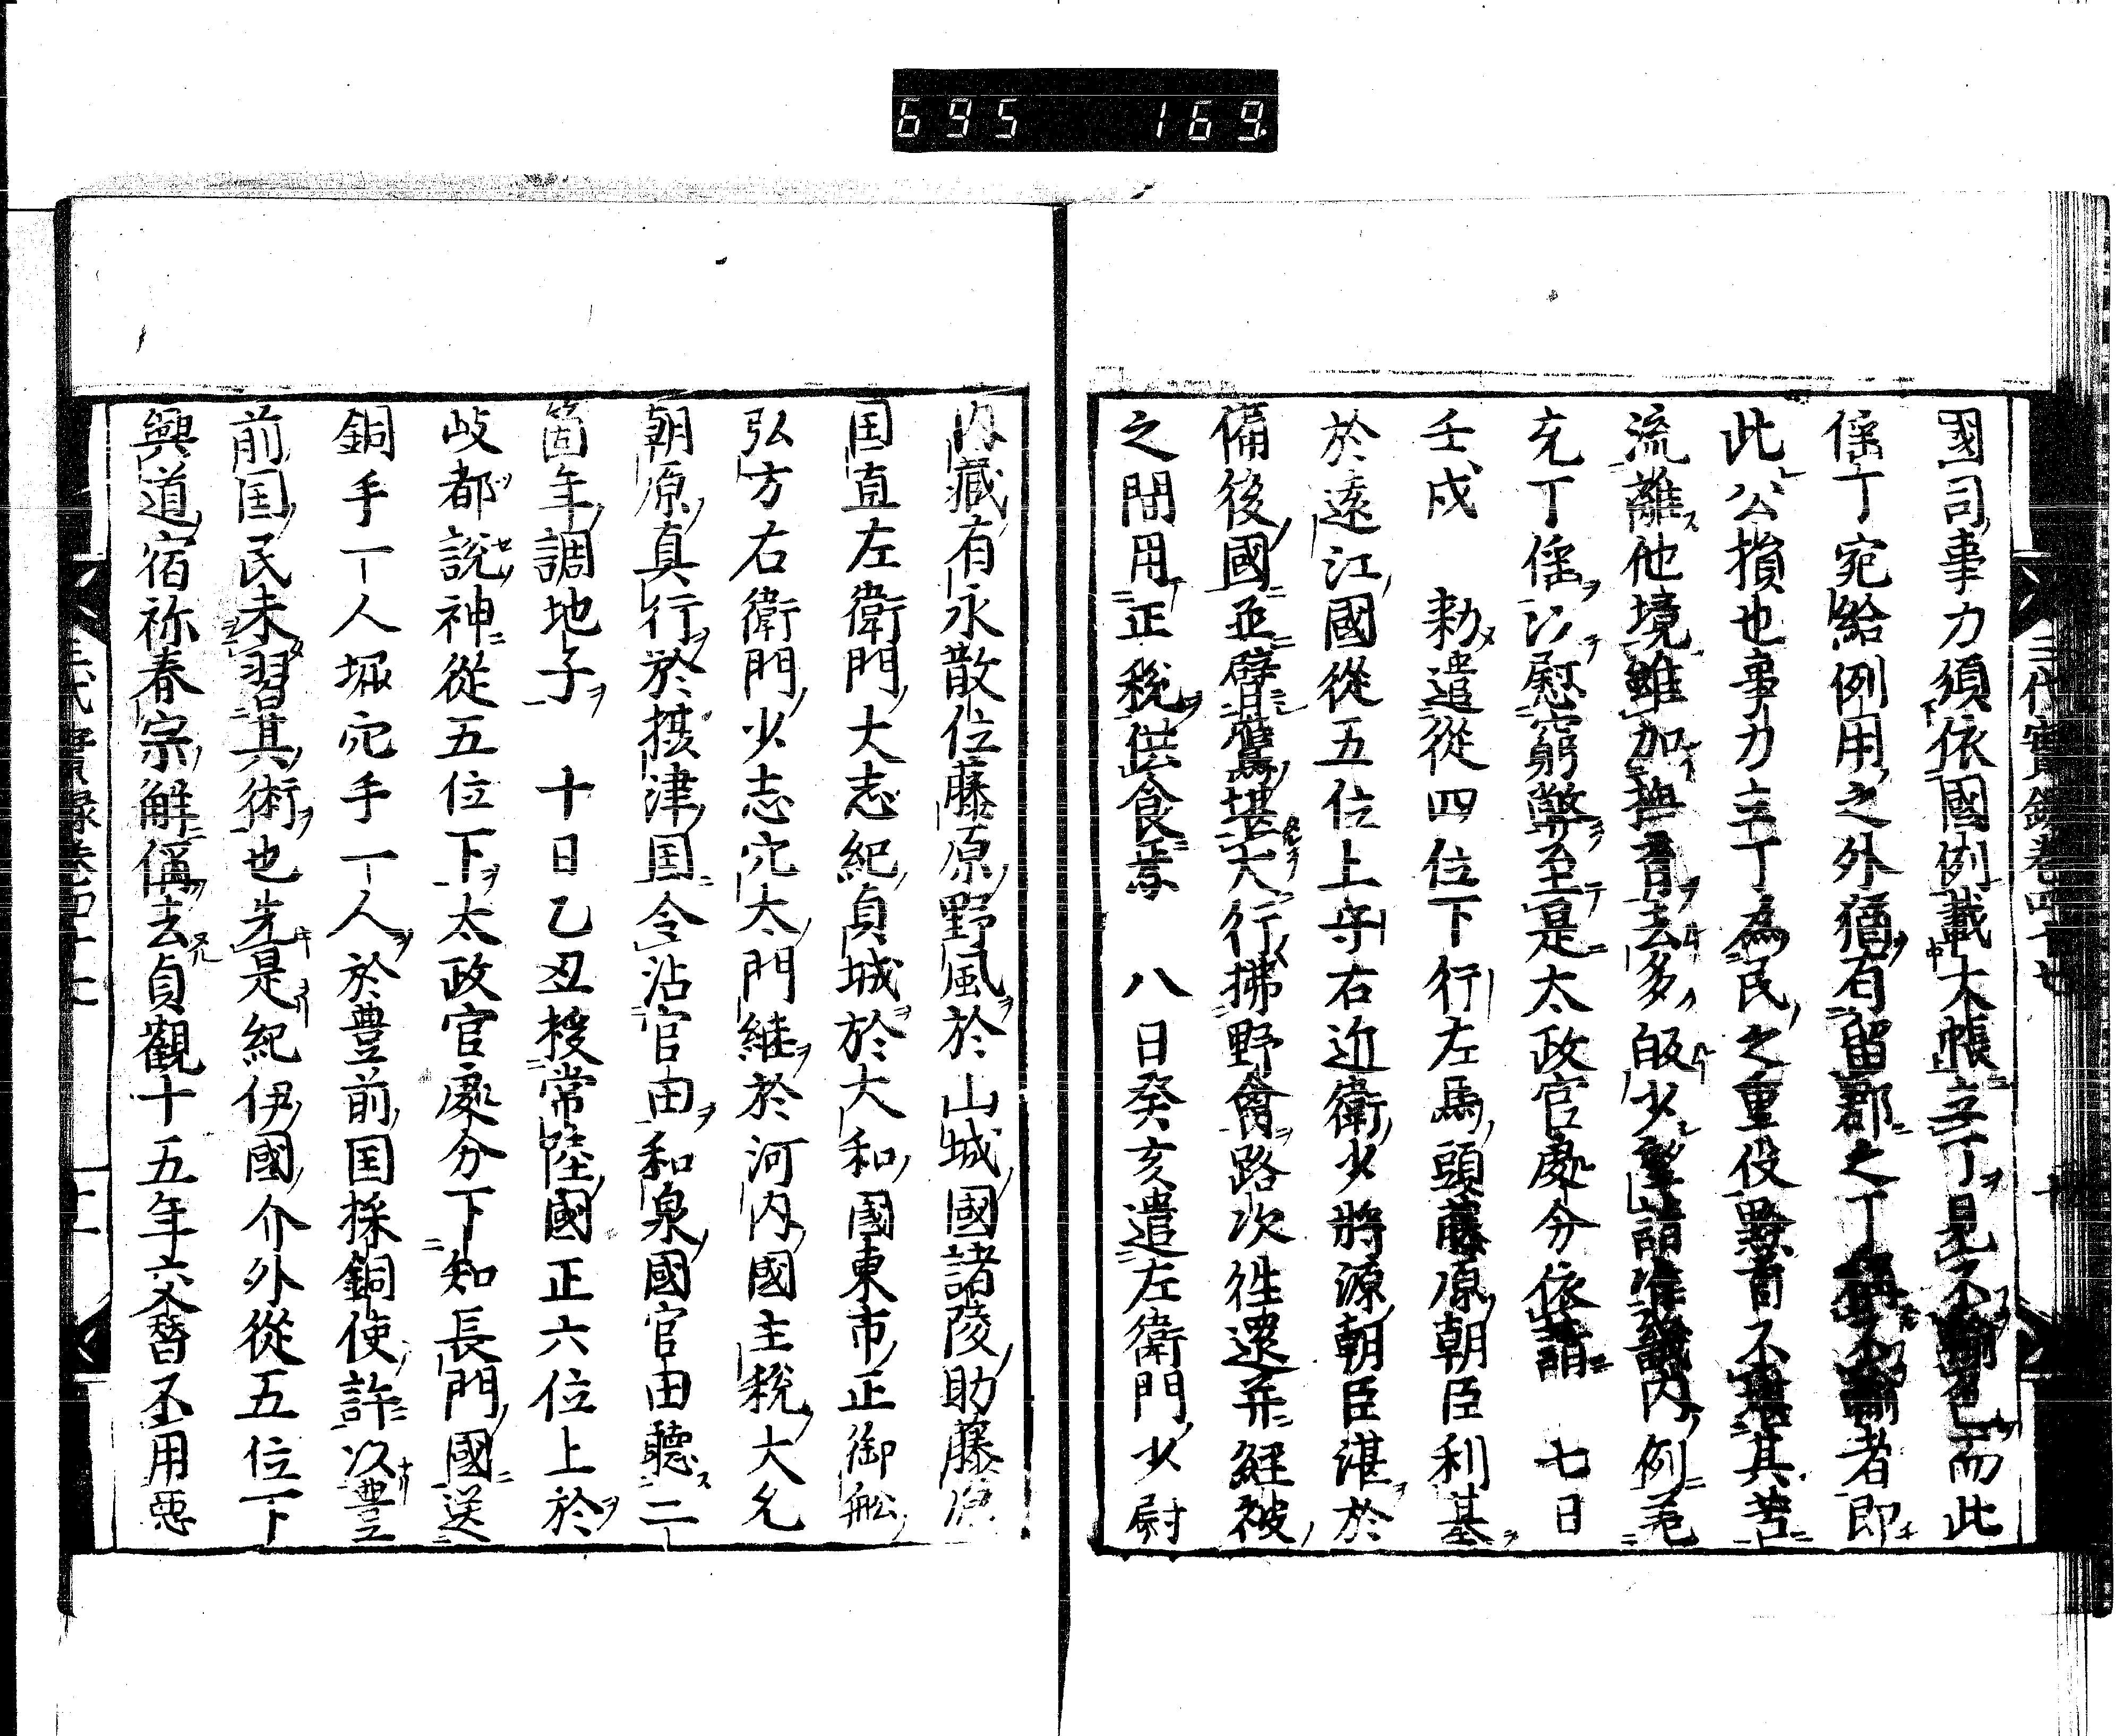 695 169
國司事力須依國例載大帳立丁見不輸色而此
徭丁宛給例用之外猶有留郡之丁稱不輸者即
此公損也事力立丁為民之重役黔首不堪其苦
流離他境雖加撫育去多皈少望請准畿内例差
充丁徭以慰窮弊至是太政官處分依請 七日
壬戌 勅遣從四位下行左馬頭藤原朝臣利基
於遠江國從五位上守右近衛少將源朝臣湛於
備後國並臂鷹堪大行拂野禽路次徃還并經被
之間用正税供食焉 八日癸亥遣左衛門少尉
内藏有永散位藤原野風於山城國諸陵助藤原
国直左衛門大志紀貞城於大和國東市正御舩
弘方右衛門少志穴太門継於河内國主税大允
朝原真行於摂津国令沽官田和泉國官田聽二
箇年調地子 十日乙丑授常陸國正六位上於
岐都説神從五位下太政官處分下知長門國送
銅手一人堀穴手一人於豊前国採銅使許以豊
前国民未習其術也先是紀伊國介外從五位下
興道宿祢春宗解偁去貞觀十五年六交替丕用惡